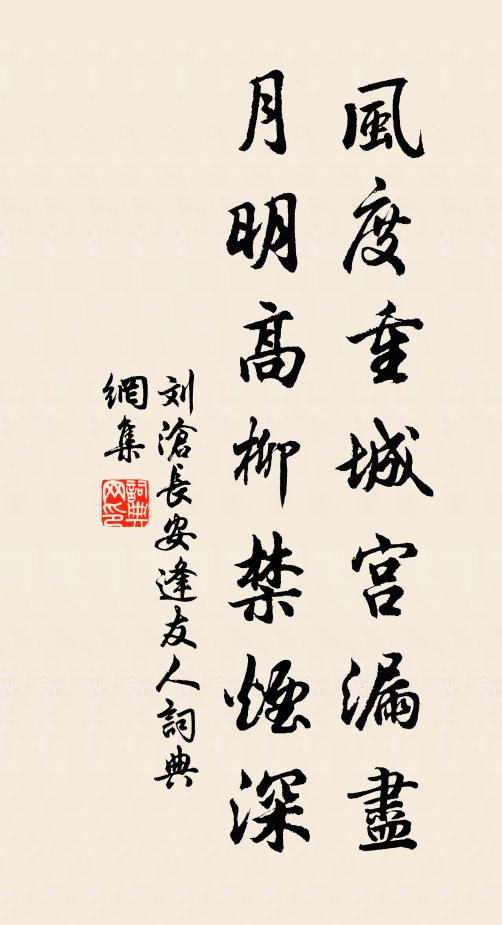 風度重城宮漏盡
月明高柳禁煙深
刘滄長安逢友人詞典
網集
詞典
网印